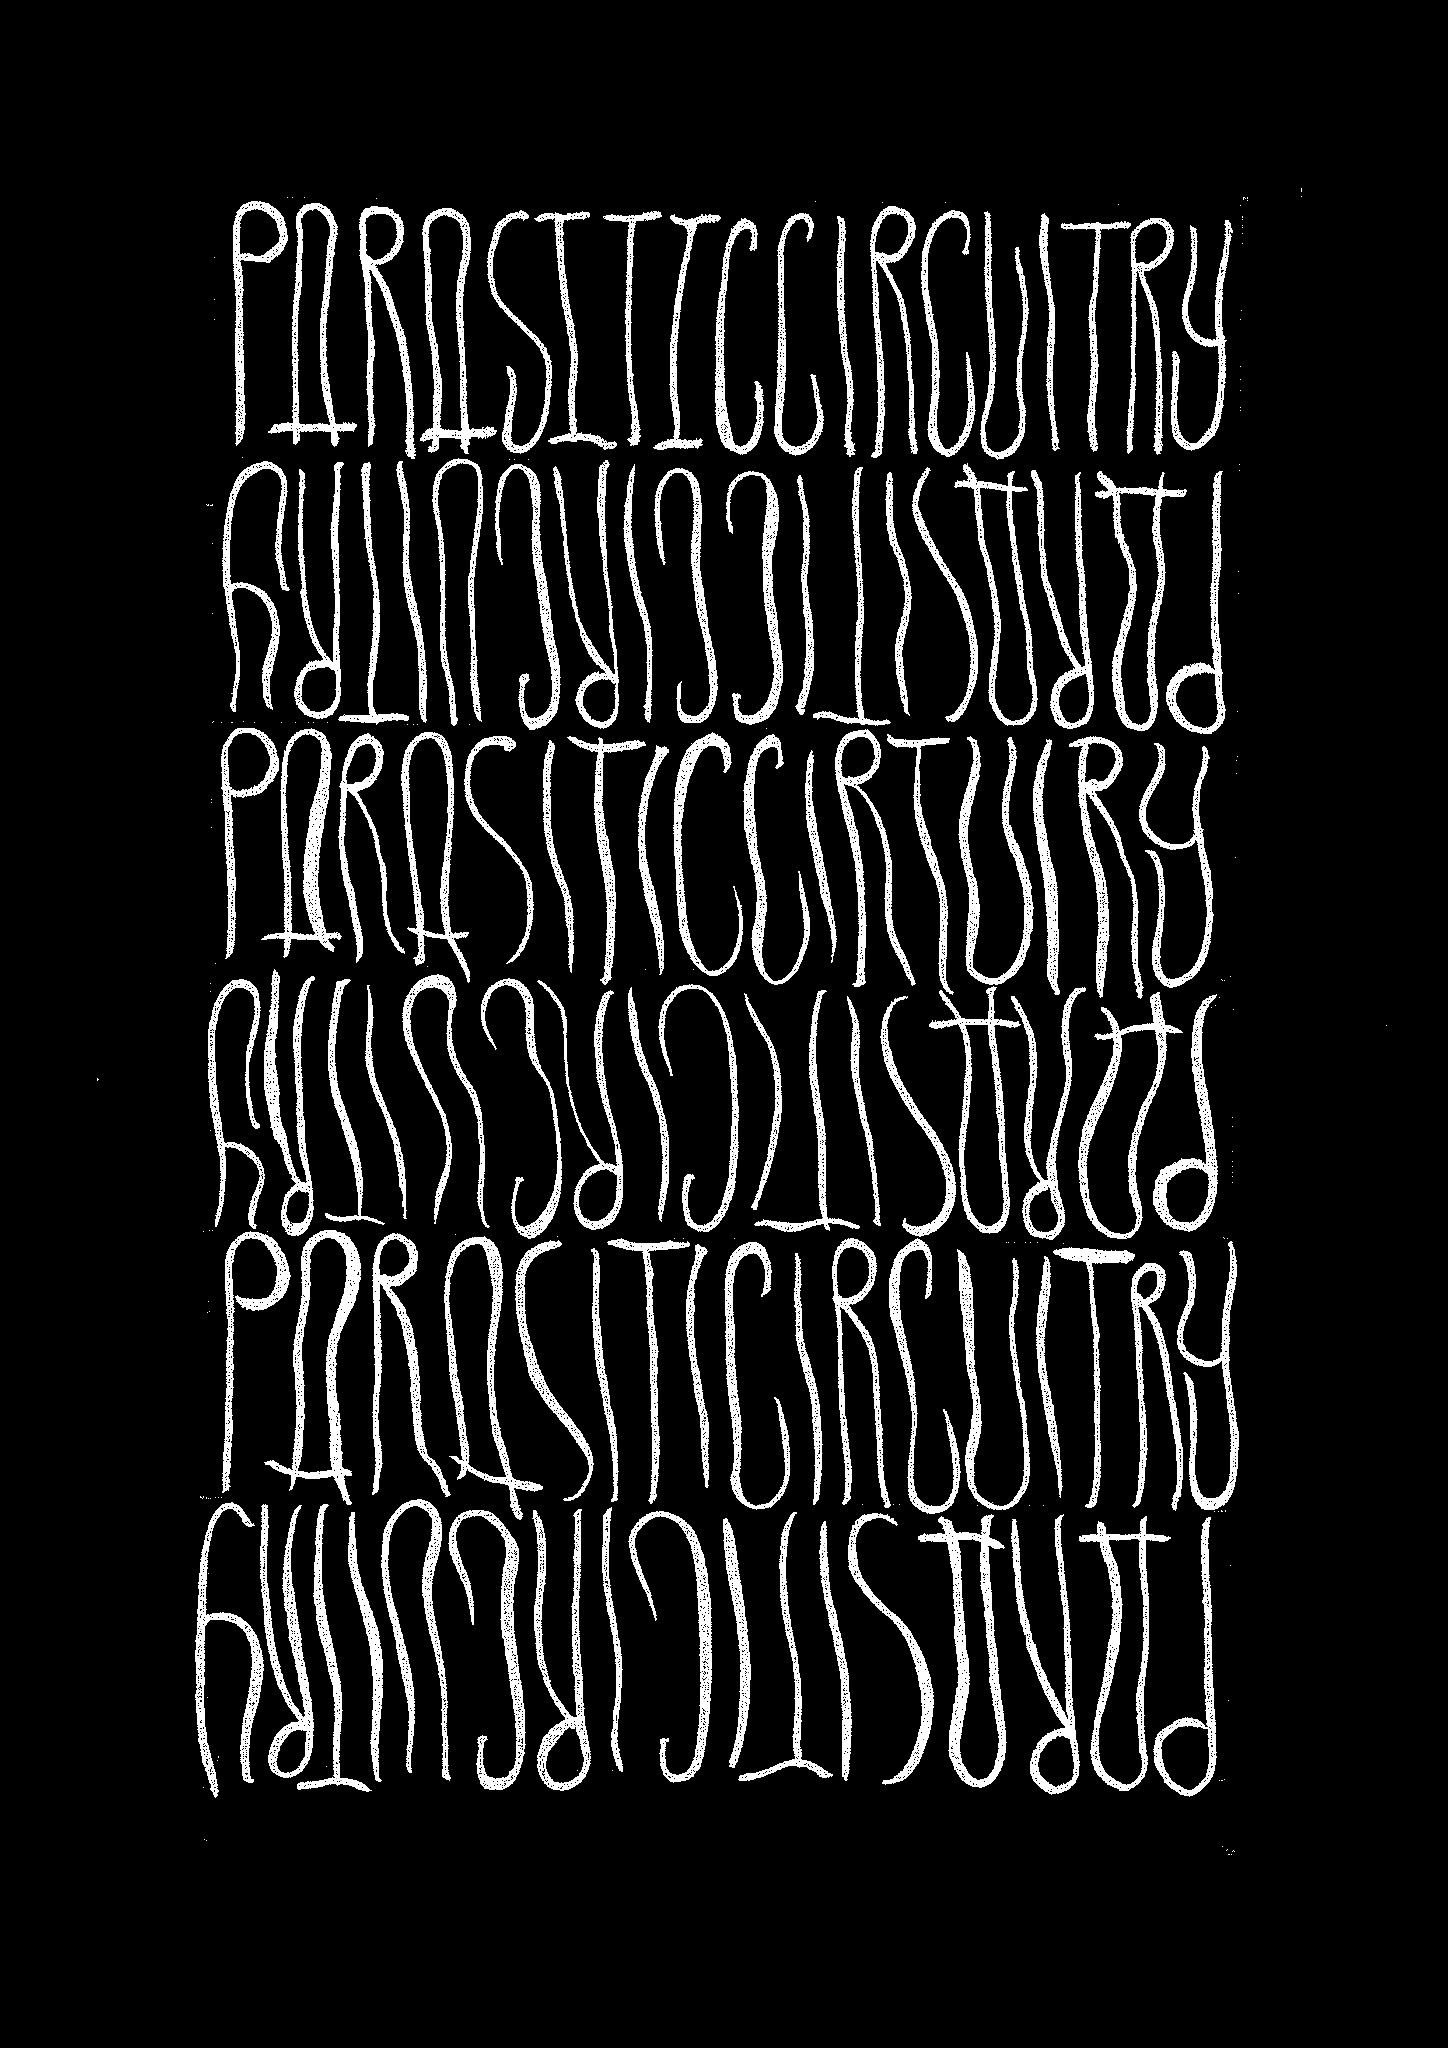 PARASITICCIRCUITRY
PARASITICCIRCUITRY
PARASITICCIRTUIRY
PARASITICIRCUITRY
PARASITICIRCUITRY
PARASITICIRCUITRY